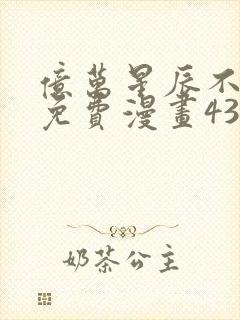 億萬星辰不
免費漫畫43
奶茶公主